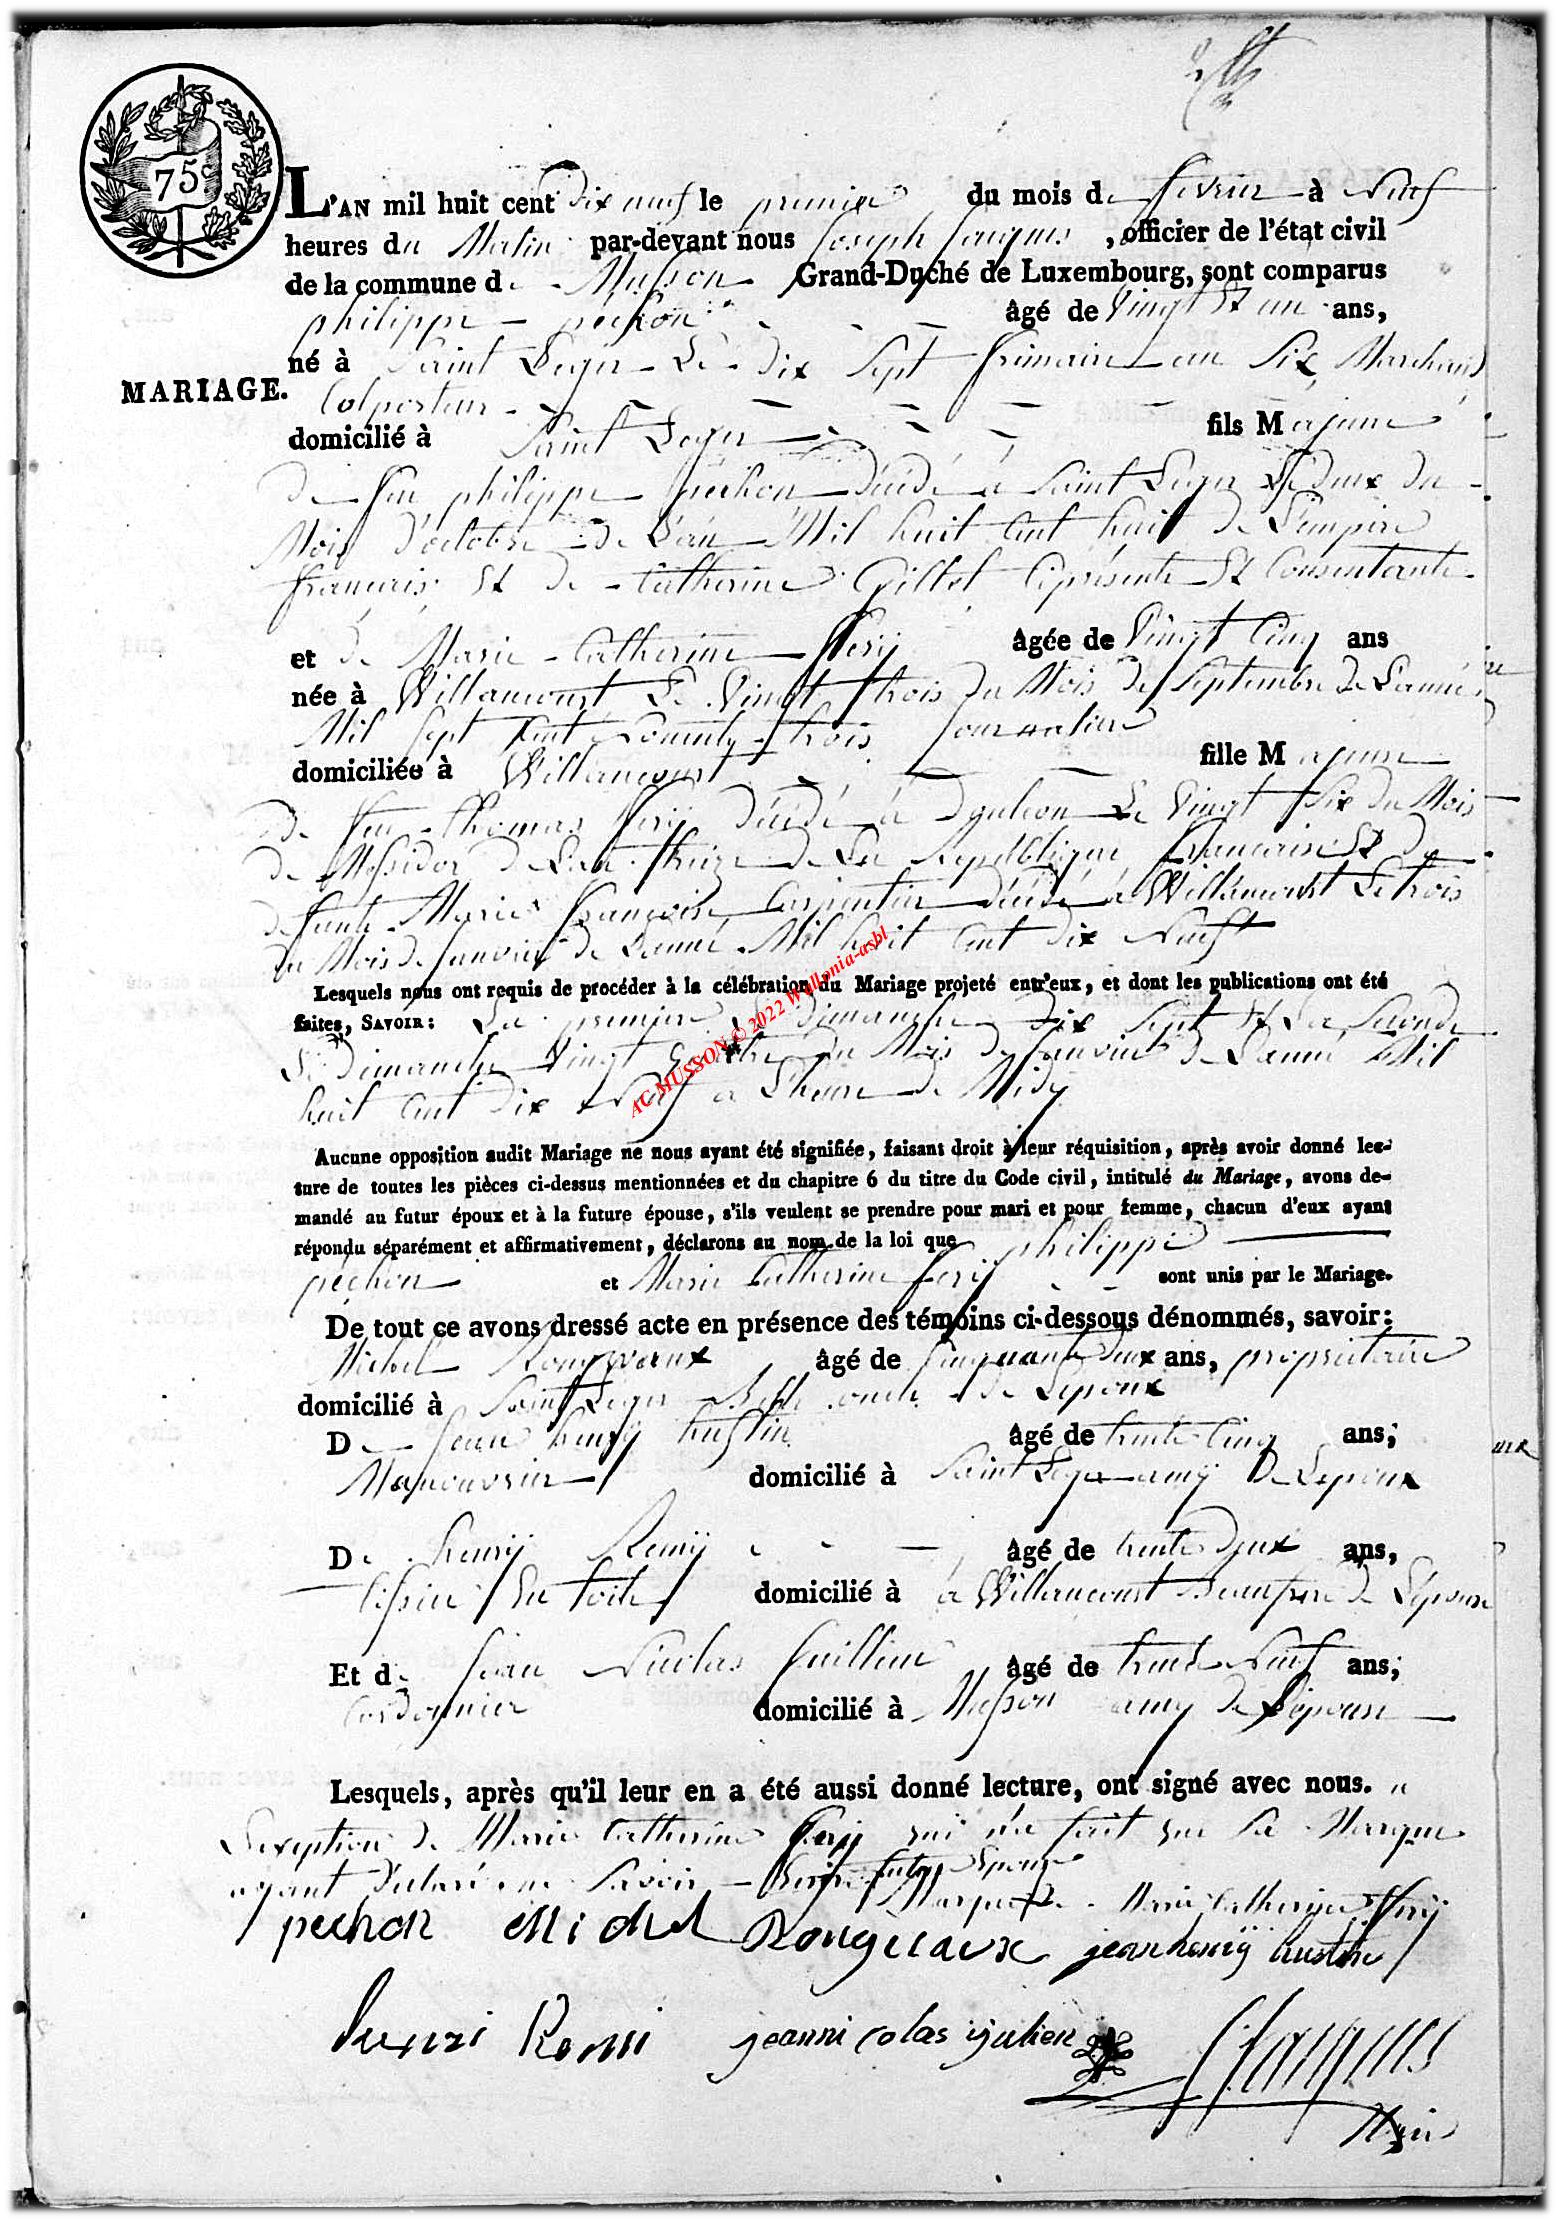 75c
L'AN mil huit cent Dix neuf le premier du mois de fevrier à Neuf
heures du Matin par-devant nous Joseph Jaques, officier de l'état civil
de la commune de Musson Grand-Duché de Luxembourg, sont comparus
philippe péchon âgé de Vingt Et un ans,
né à Saint Leger Le dix Sept frimaire an Six, Marchand
MARIAGE.
Colporteur
domicilié à Saint Leger fils Majeure
De feu philippe péchon Décédé à Saint Leger Le deux du
Mois d'octobre de L'an Mil huit Cent huit de L'empire
francais Et de Catherine Gillet Ciprésente Et Consentante
et de Marie Catherine ferÿ âgée de Vingt Cinq ans
née à Willancourt Le Vingt trois du Mois de Septembre de L'année
Mil Sept Cent Nonenty trois Journaliere
domiciliée à Willancourt fille Majeure
de feu thomas ferÿ Décédé à Le Vingt Six du Mois
de Messidor de L'an treize de La Republique francaise Et de
defunte Marie françoise Carpentier décédé à Willancourt Le trois
du Mois de Janvier de L'année Mil huit Cent dix Neuf
Lesquels nous ont requis de procéder à la célébration du Mariage projeté entr'eux, et dont les publications ont été
faites, SAVOIR: La premiere Le dimanche Dix Sept Et La Seconde
Le Dimanche Vingt quatre du Mois de Janvier de L'année Mil
huit Cent Dix Neuf à L'heure de Midy
AC MUSSON © 2022 Wallonia-asbl
Aucune opposition audit Mariage ne nous ayant été signifiée, faisant droit à leur réquisition, après avoir donné lec-
ture de toutes les pièces ci-dessus mentionnées et du chapitre 6 du titre du Code civil, intitulé du Mariage, avons de-
mandé au futur époux et à la future épouse, s'ils veulent se prendre pour mari et pour femme, chacun d'eux ayant
répondu séparément et affirmativement, déclarons au nom de la loi que philippe
péchon et Marie Catherine ferÿ sont unis par le Mariage.
De tout ce avons dressé acte en présence des témoins ci-dessous dénommés, savoir:
Michel Rongvaux âgé de Cinquante Deux ans, propriétaire
domicilié à Saint Leger Belle oncle de L'époux
De Jean henrÿ hustin âgé de trente Cinq ans;
Manouvrier domicilié à Saint Leger amÿ De L'epoux
De henrÿ Remÿ âgé de trente Deux ans,
tissier En toile domicilié à à Willancourt Beaufrere de L'épouse
Et de Jean Nicolas Juillien âgé de trente Neuf ans;
Cordonnier domicilié à Musson amy de L'épouse
Lesquels, après qu'il leur en a été aussi donné lecture, ont signé avec nous. à
L'exeption de Marie Catherine ferÿ qui n'a fait que Sa Marque
ayant Déclaré ne Savoir Ecrire future Epouse
Marque + de Marie Catherine ferÿ
pechon Michel Rongveaux jean henrÿ hustin
henri Remi jeanni colas ijulien J Jaques